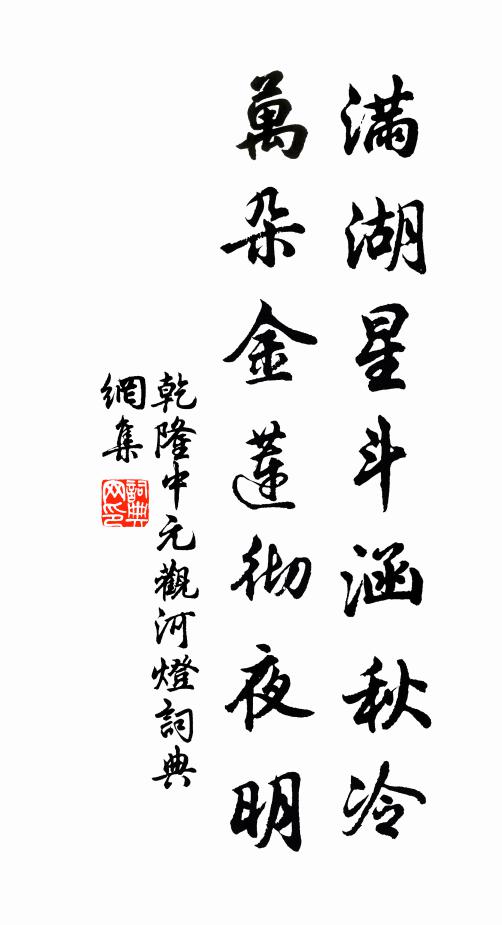 滿湖星斗涵秋冷
萬朶金蓮彻夜明
乾隆中元觀河燈詞典
網集
詞典網印